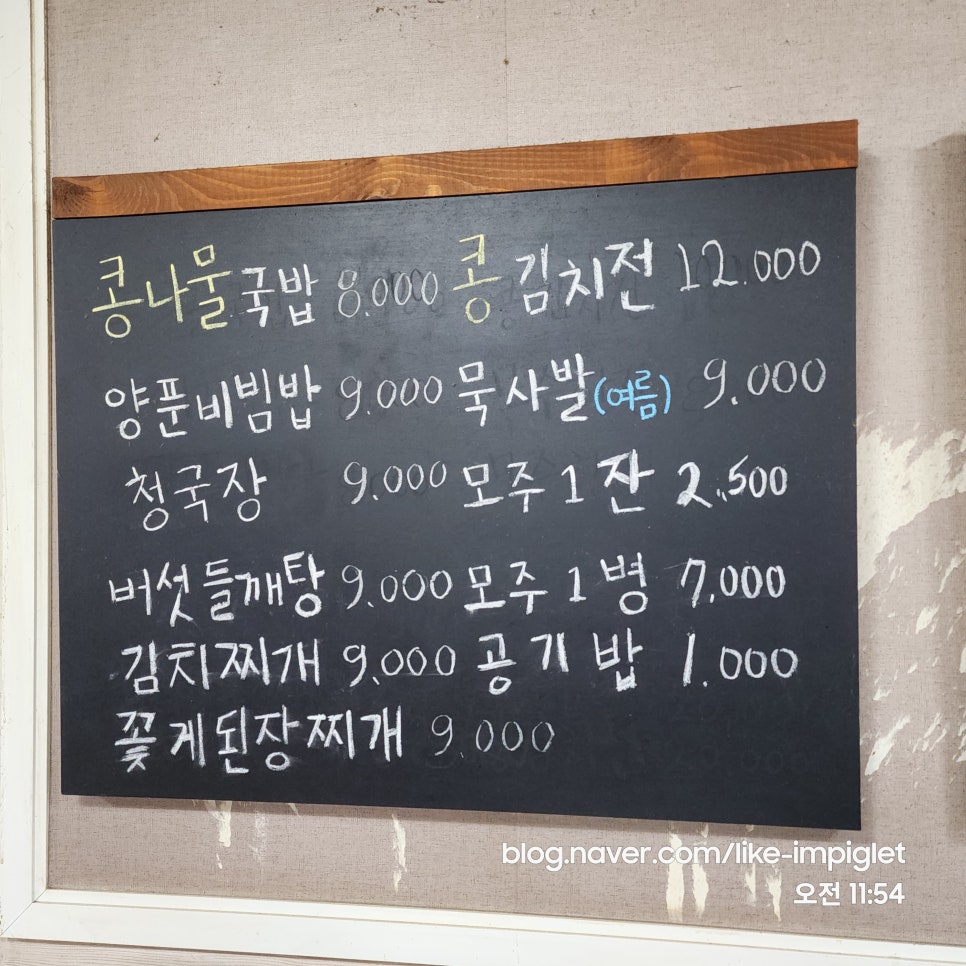 콩나물국밥 8.000 콩김치전 12.000
양푼비빔밥 9.000 묵사발(여름) 9.000
청국장 9.000 모주 1잔 2.500
버섯들깨탕 9.000 모주 1병 7.000
김치찌개 9.000 공기밥 1.000
꽃게된장찌개 9.000
blog.naver.com/like-impiglet
오전 11:54